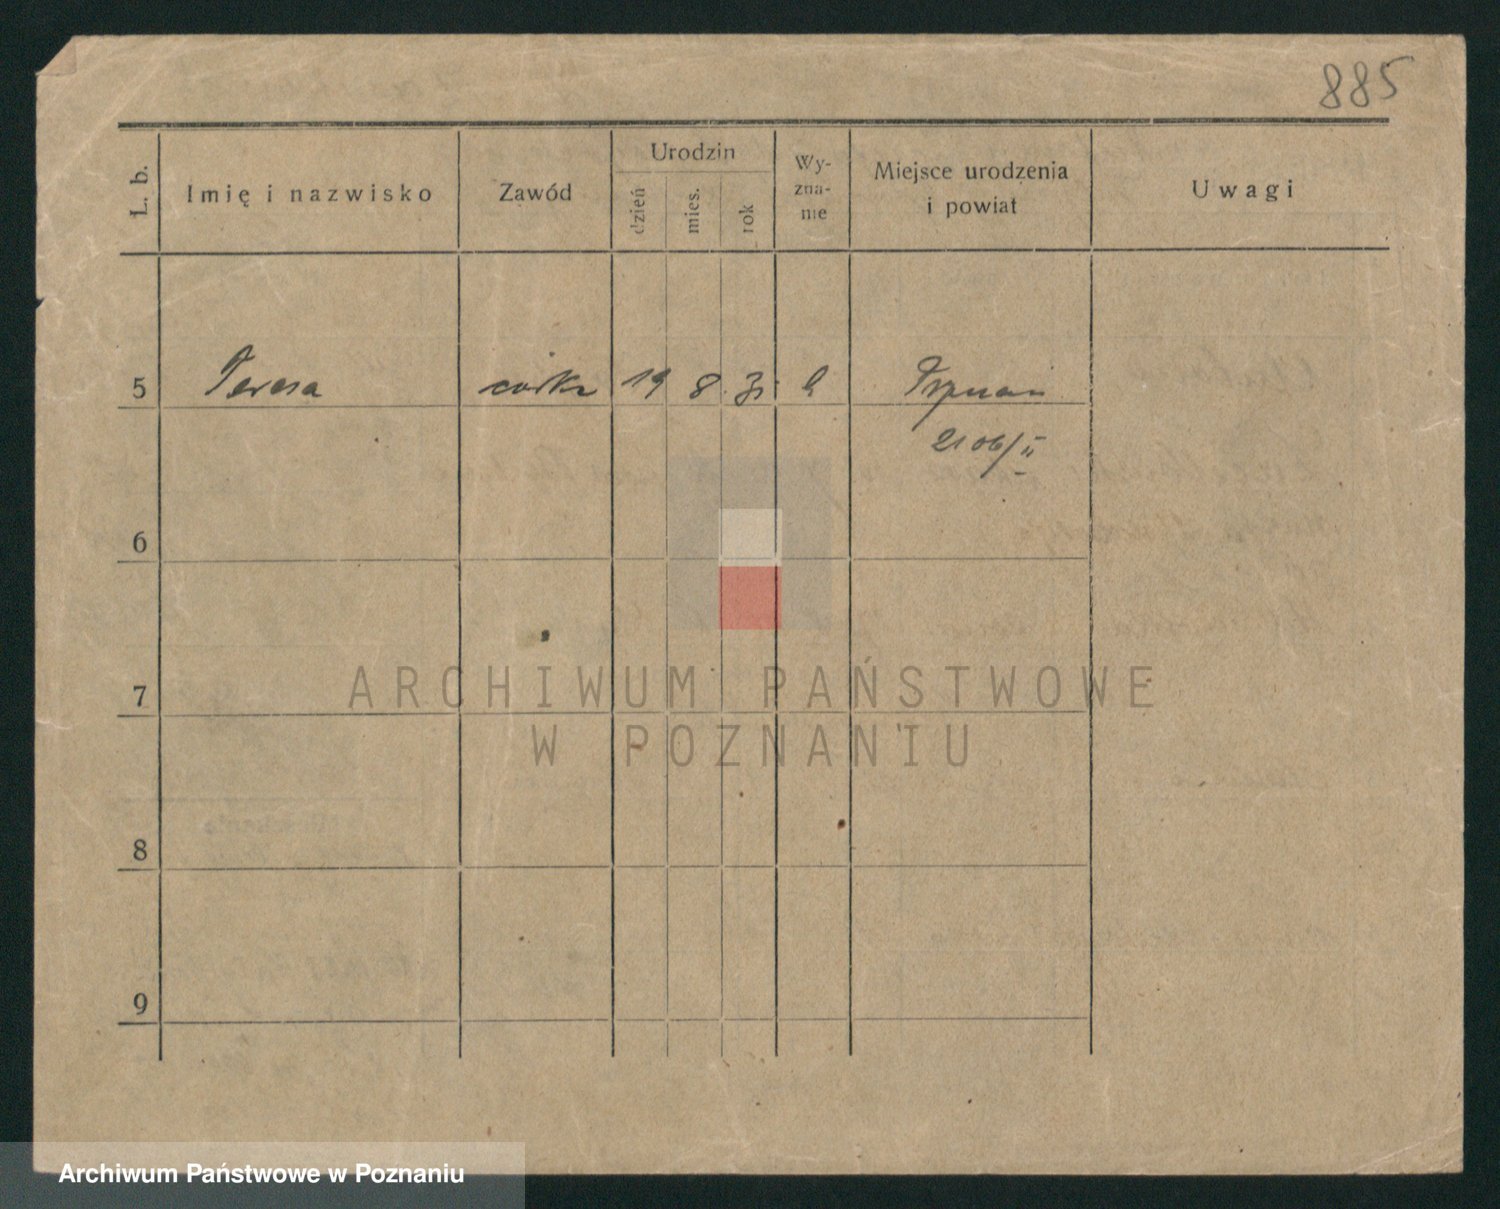 885
L. b.
Imię i nazwisko
Zawód
Urodzin
dzień
mies.
rok
Wy-
zna-
nie
Miejsce urodzenia
i powiat
Uwagi
5 Teresa córka 19 8 31 Poznań
2106/II
6
7
8
9
ARCHIWUM PAŃSTWOWE
W POZNANIU
Archiwum Państwowe w Poznaniu